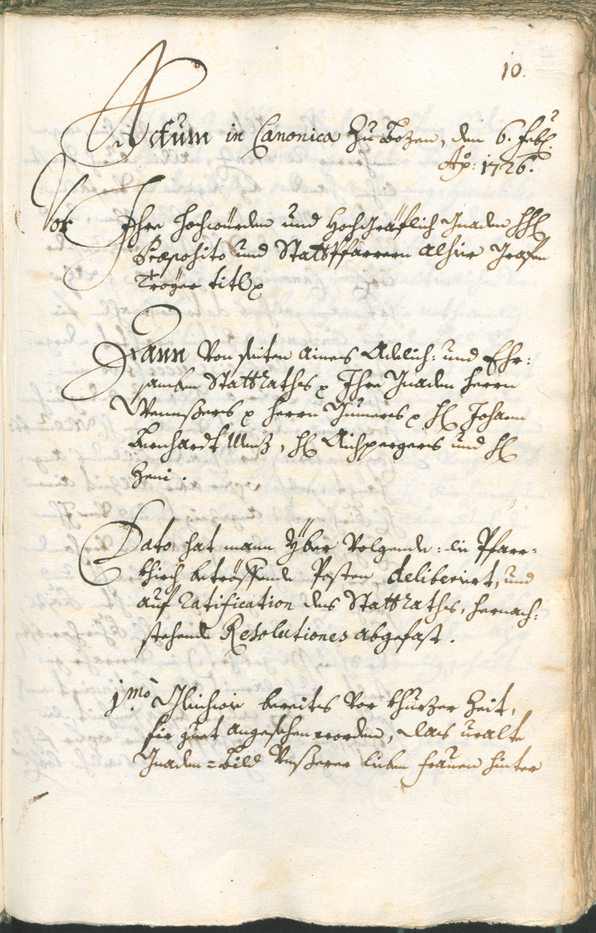 10.
Actum in Canonica Zu Bozen, den 6. Feb:
Ao: 1726.
Vor Ihro hochwürden und Hochgräflich Gnaden HH
Præposito und Stattpfarrern alhie Grafen
Troyer titl
Dann Von seiten aines Adelich: und Ehr:
samben Stattraths Ihro Gnaden herrn
herrn Gumers H Johann
Bernhardt H Aichpergers und H
Zeni.
Dato hat mann yber Volgende: die Pfarr=
khirch betröffende Posten deliberiert, und
auf ratification des Stattraths, hernach:
stehende Resolutiones abgefast.
1mo Gleichwie bereits Vor khurzer Zeit,
fir guet angesehen worden, das uralte
Gnaden=Bild Unßerer lieben frauen hinter